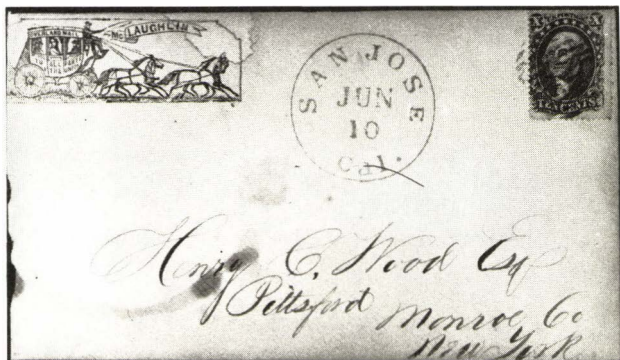 OVERLAND MAIL
McLAUGHLIN
SAN JOSE
JUN
10
Cal.
TEN CENTS
Henry C. Wood Esq
Pittsford
Monroe Co
New York